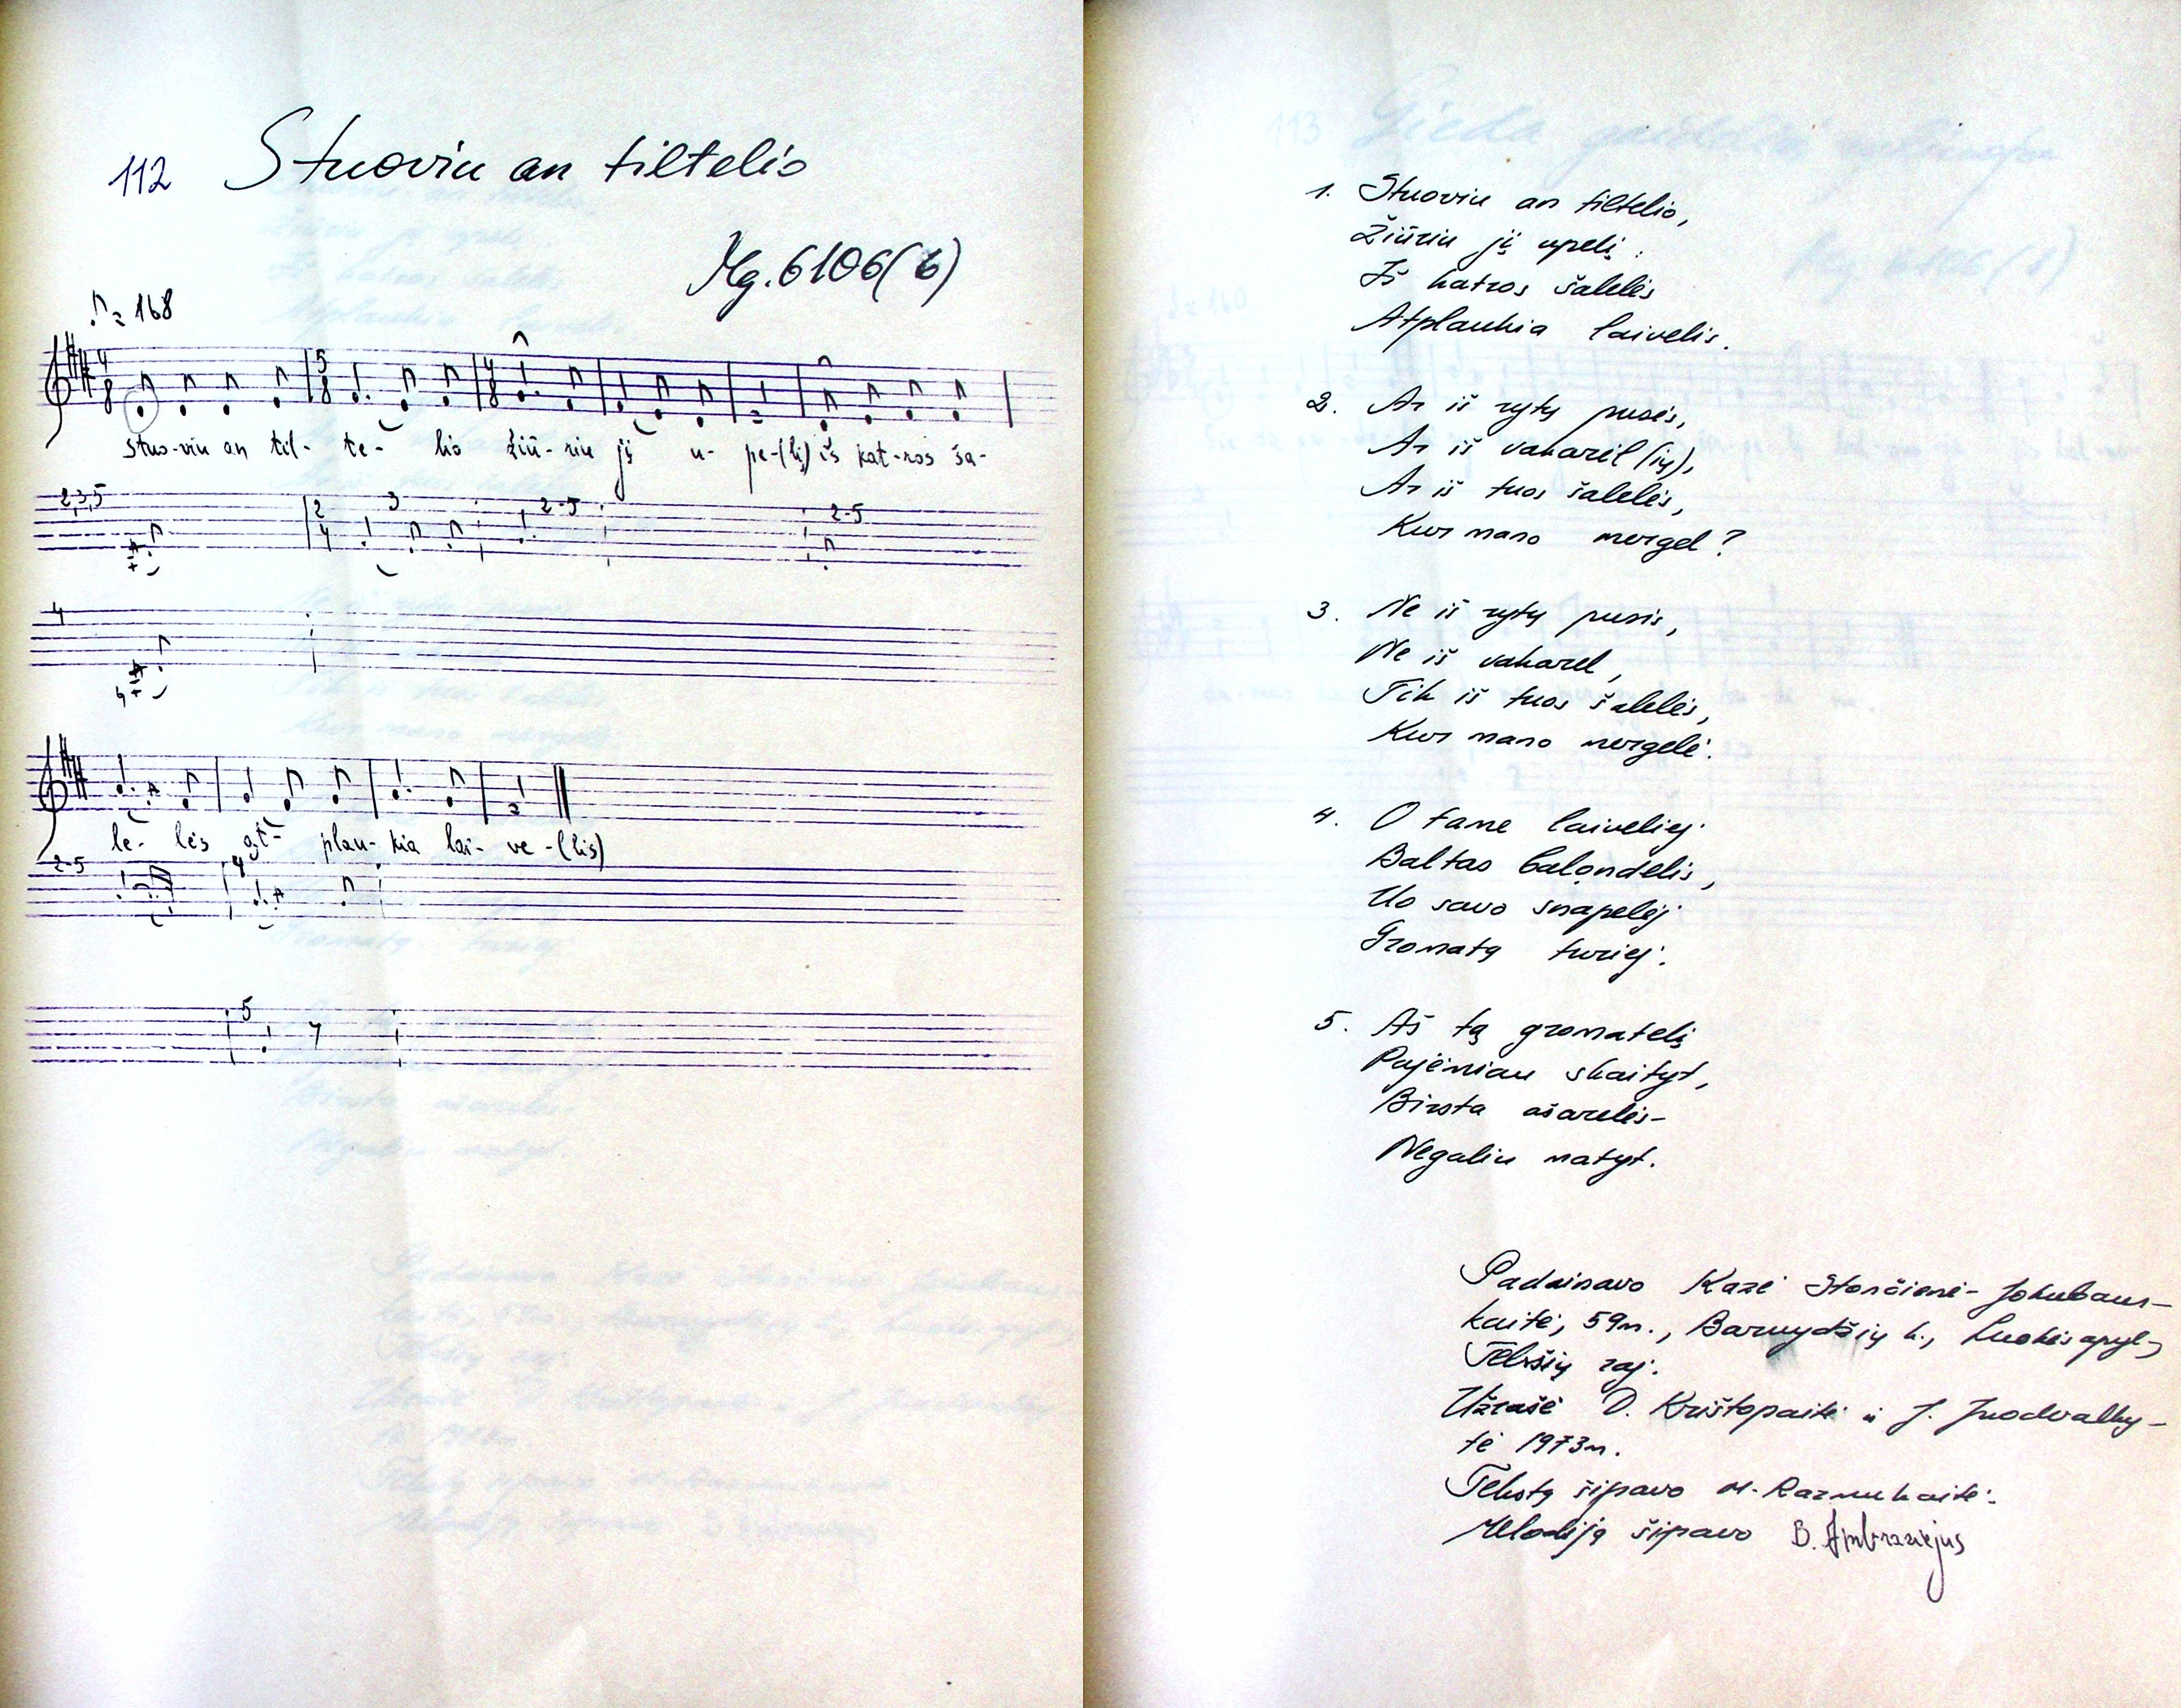 112 Stuoviu an tiltelio
Mg. 6106(6)
♪=168
stuo-viu an til- te- lio žiū-riu jį u- pe-(lį) iš kat-ros ša-
2,3,5 3 2-5 2-5
4
le- lės at- plau-kia lai- ve-(lis)
2-5 4
5
1. Stuoviu an tiltelio,
Žiūriu jį upelį:
Iš katros šalelės
Atplaukia laivelis.
2. Ar iš rytų pusės,
Ar iš vakarėl(ių),
Ar iš tuos šalelės,
Kur mano mergel?
3. Ne iš rytų pusės,
Ne iš vakarel,
Tik iš tuos šalelės,
Kur mano mergelė.
4. O tame laiveliej
Baltas balondelis,
Uo savo snapelėj
Gromatą turiej.
5. Aš tą gromatelį
Pajėmiau skaityt,
Birsta ašarelės-
Negaliu matyt.
Padainavo Kazė Stončienė-Jokubaus-
kaitė, 59m., Barvydžių k., Luokės apyl.,
Telšių raj.
Užrašė D. Krištopaitė ir J. Juodvalky-
tė 1973m.
Tekstą šifravo M. Razmukaitė.
Melodiją šifravo B. Ambraziejus